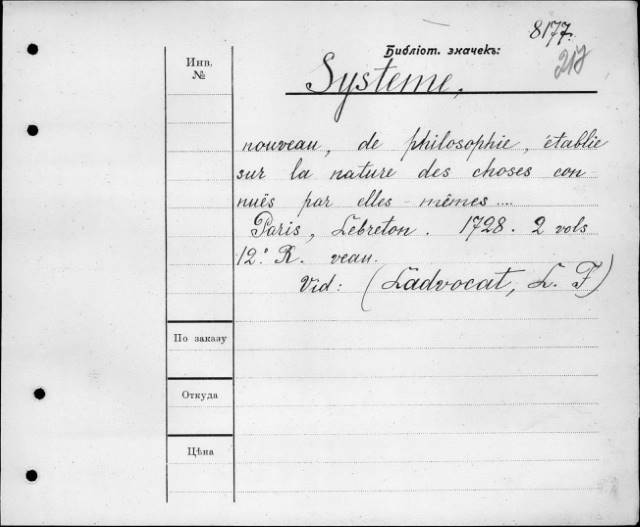 8177.
Библіот. значекъ:
217
Инв.
№
Systeme,
nouveau, de philosophie, établie
sur la nature des choses con-
nuës par elles-mêmes....
Paris, Lebreton. 1728. 2 vols
12º R. veau.
Vid: (Ladvocat, L. F)
По заказу
Откуда
Цѣна